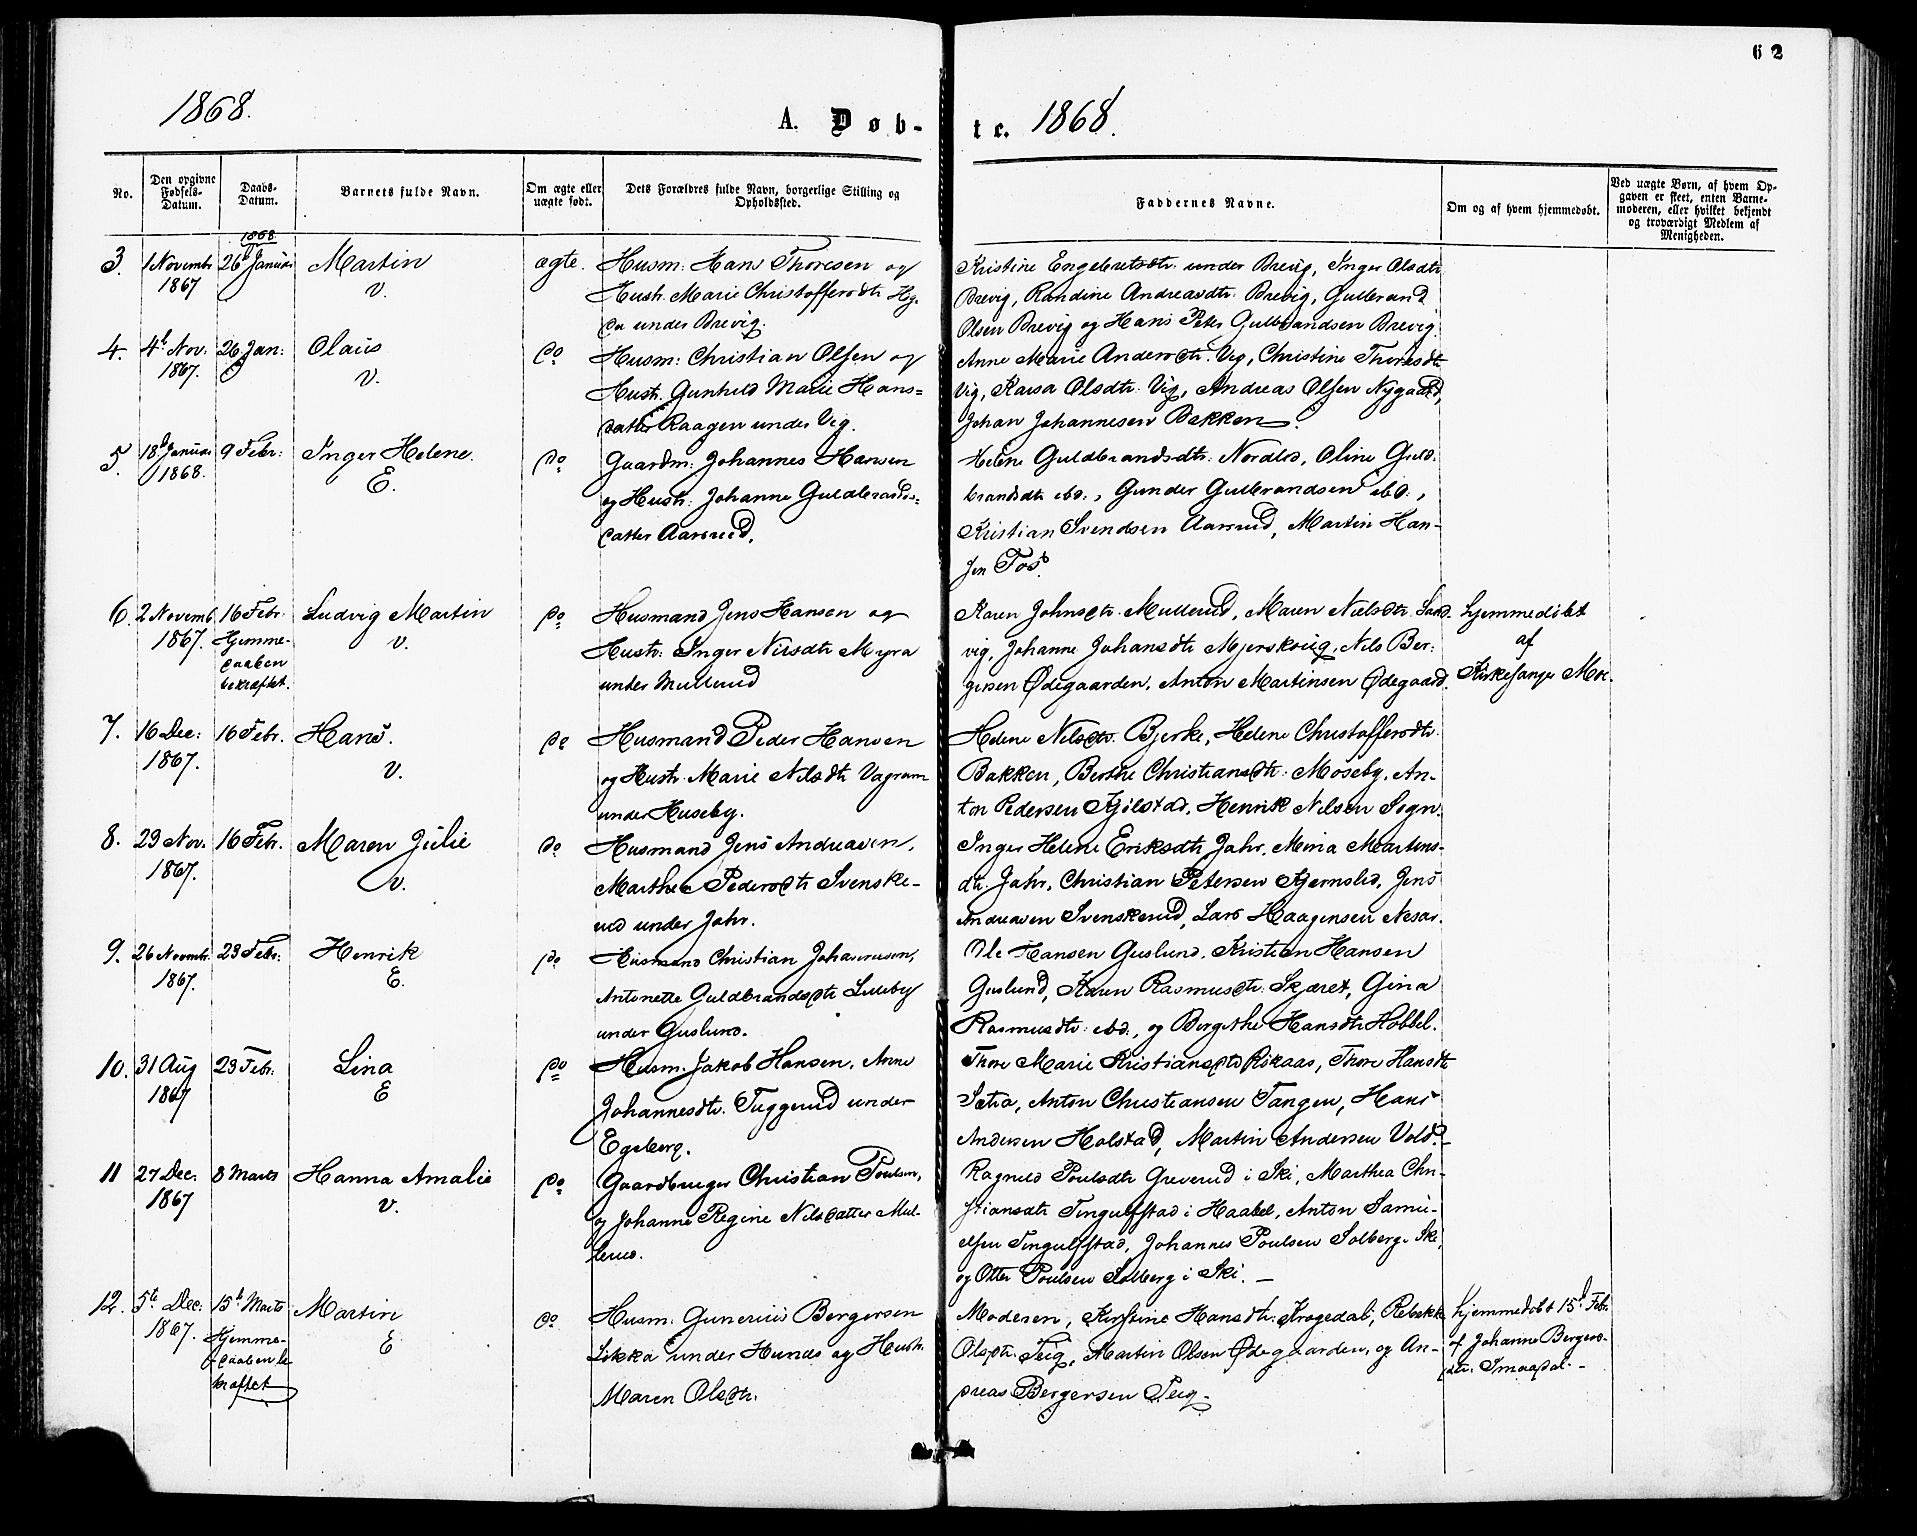 62
1868. A. Døb- te. 1868.
No.
Den opgivne Fødsels-Datum.
Daabs-Datum.
Barnets fulde Navn.
Om ægte eller uægte født.
Dets Forældres fulde Navn, borgerlige Stilling og Opholdssted.
Faddernes Navne.
Om og af hvem hjemmedøbt.
Ved uægte Børn, af hvem Opgaven er skeet, enten Barnemoderen, eller hvilket bekjendt og troværdigt Medlem af Menigheden.
1868
3. 1 Novembr 26 Januar Martin ægte. Husm: Hans Thoresen og Kristine Engebretsdtr. under Brevig, Inger Olsdtr
1867 v. Hustr. Marie Christoffersdtr Brevig, Randine Andreasdtr. Brevig, Gulbrand
under Brevig. Olsen Brevig og Hans Peter Gulbrandsen Brevig.
4. 4 Nov: 26 Jan: Olaus do Husm: Christian Olsen og Anne Marie Andersdtr. Vig, Christine Thoresdtr
1867. v. Hustr. Gunhild Marie Hans= Vig, Kaisa Olsdtr. Vig, Andreas Olsen Nygaard,
datter Kaagen under Vig. Johan Johannesen Bakken.
5. 18 Januar 9 Febr: Inger Helene. do Gaardm: Johannes Hansen Helene Guldbrandsdtr. Nordlid, Oline Guld:
1868. E. og Hustr: Johanne Guldbrands= brandsdtr ibd., Gunder Gulbrandsen ibd.,
datter Aarsrud. Kristian Svendsen Aarsrud, Martin Han-
sen Fos.
6. 2 Novemb. 16 Febr. Ludvig Martin do Husmand Jens Hansen og Karen Johnsdtr. Mullerud, Maren Nielsdtr. Sand- hjemmedøbt
1867. Hjemme- v. Hustr: Inger Nilsdtr Myra vig, Johanne Johansdtr Mjerskoug, Nils Ber- af
daaben under Mullerud gersen Ødegaarden, Anton Martinsen Ødegaard. Kirkesanger Moe.
bekræftet.
7. 16 Dec: 16 Febr. Hans. do Husmand Peder Hansen Helene Nilsdtr. Bjerke, Helene Christoffersdtr.
1867. v. og Hustr. Marie Nilsdtr Vagram Bakken, Berthe Christiansdtr. Moseby, An-
under Huseby. ton Pedersen Kjølstad, Henrik Nilsen Sogn.
8. 23 Nov. 16 Febr. Maren Julie do Husmand Jens Andreasen, Inger Helene Eriksdtr Jahr, Mina Martins-
1867. v. Marthea Pedersdtr Svenske- dtr. Jahr, Christian Petersen Kjernslid, Jens
rud under Jahr. Andreasen Svenskerud, Lars Haagensen Nesar.
9. 26 Novembr. 23 Febr: Henrik do Husmand Christian Johannesen, Ole Hansen Guslund, Kristian Hansen
1867. E. Antonette Guldbrandsdtr Lilleby Guslund, Karen Rasmusdtr. Skjæret, Gina
under Guslund. Rasmusdtr: ibd., og Bergithe Hansdtr Hobbel.
10. 31 Aug 23 Febr: Lina do Husm. Jakob Hansen, Anne Thore Marie Kristiansdtr Riskaas, Thore Hansdtr
1867 E Johannesdtr. Tuggerud under Sætra, Anton Christiansen Tangen, Hans
Egeberg. Andersen Holstad, Martin Andersen Vold.
11 27 Dec: 8 Marts Hanna Amalie do Gaardbruger Christian Poulsen, Ragnild Poulsdtr Greverud i Ski, Marthea Chri-
1867 v. og Johanne Regine Nilsdatter Mul- stiansdtr Tingulfstad i Haabøl, Anton Samu-
lerud. elsen Tingulfstad, Johannes Poulsen Solberg i Ski,
og Otter Poulsen Solberg i Ski.
12. 5te Dec: 15 Marts Martin do. Husm: Gunerius Bergersen Moderen, Kirstine Hansdtr. Krogedal, Rebekka hjemmedøbt 15 Febr.
1867. Hjemme- E Likka under Hunds og Hustr. Olsdtr. Teig, Martin Olsen Ødegaarden, og An- af Johanne Bergers-
daaben be Maren Olsdtr. dreas Bergersen Teig. dtr: Smaadal.
kræftet